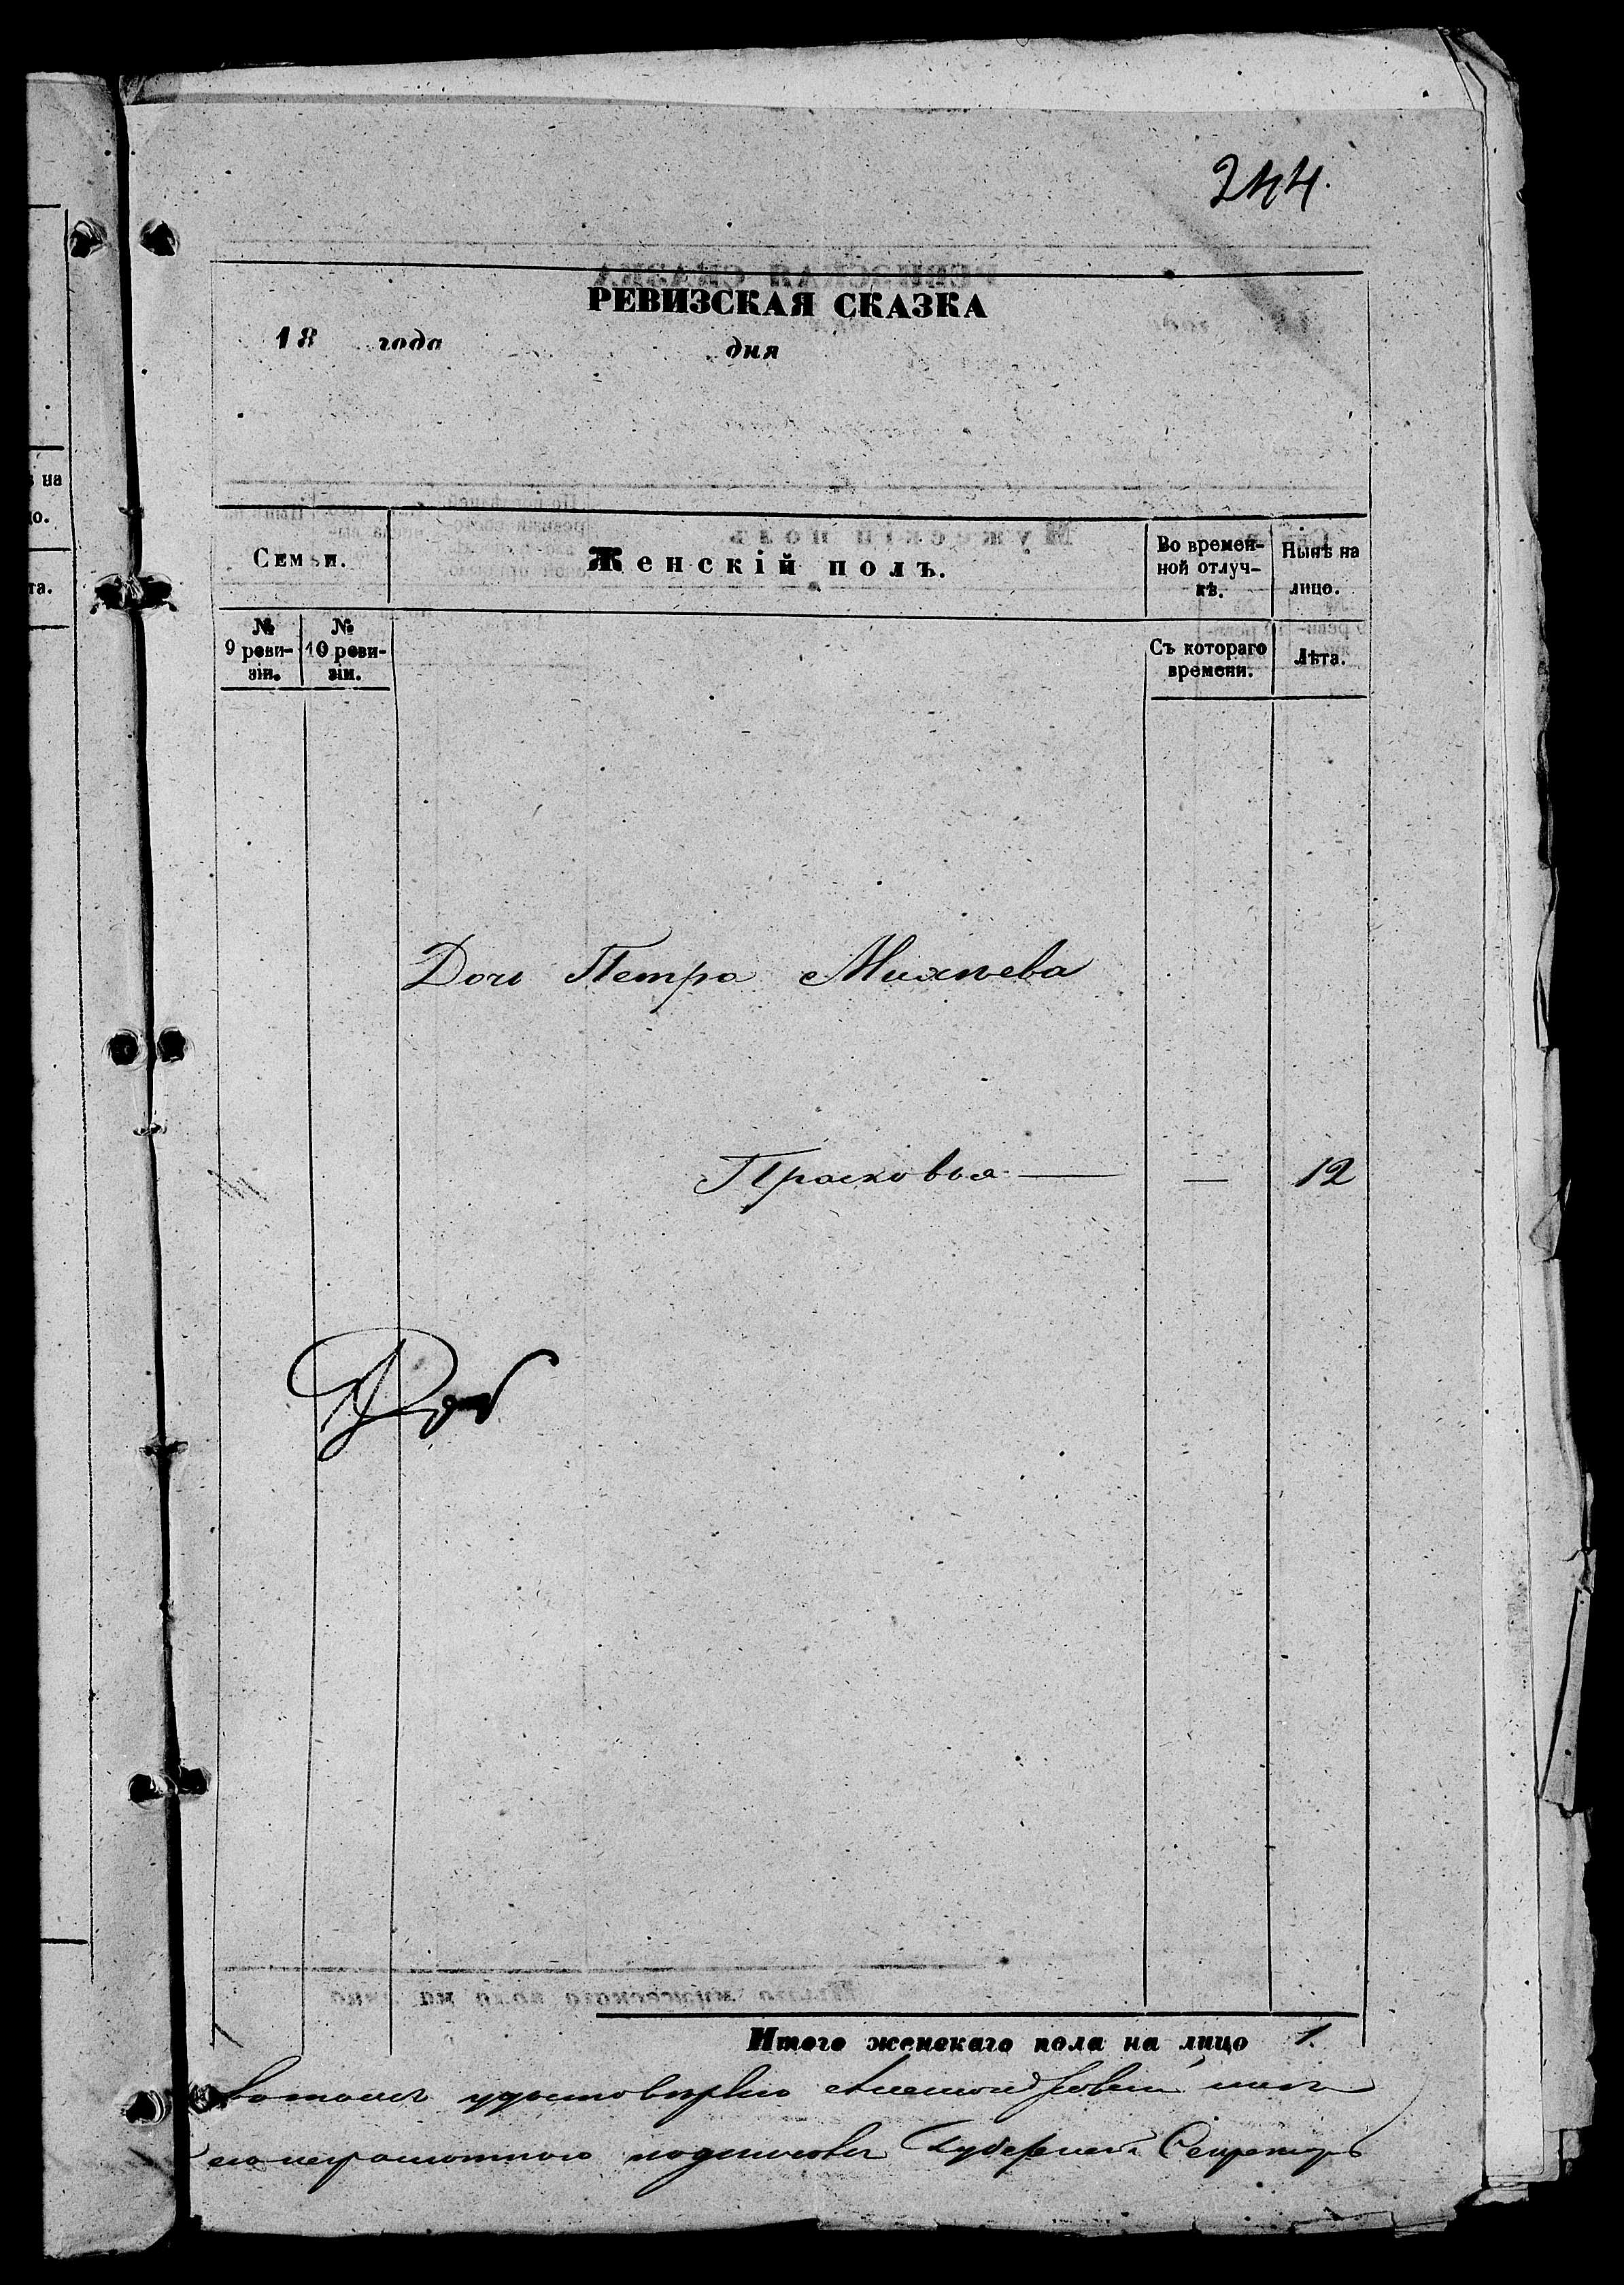 244.
РЕВИЗСКАЯ СКАЗКА
18 года дня
Семьи.
Женскій полъ.
Во времен-
ной отлуч-
кѣ.
Нынѣ на
лицо.
№
9 реви-
зіи.
№
10 реви-
зіи.
Съ котораго
времени.
Лѣта.
Дочь Петра Михѣева
Прасковья — — 12
Итого женскаго пола на лицо 1.
удостовѣряю
неграмотного Губернскій Секретарь